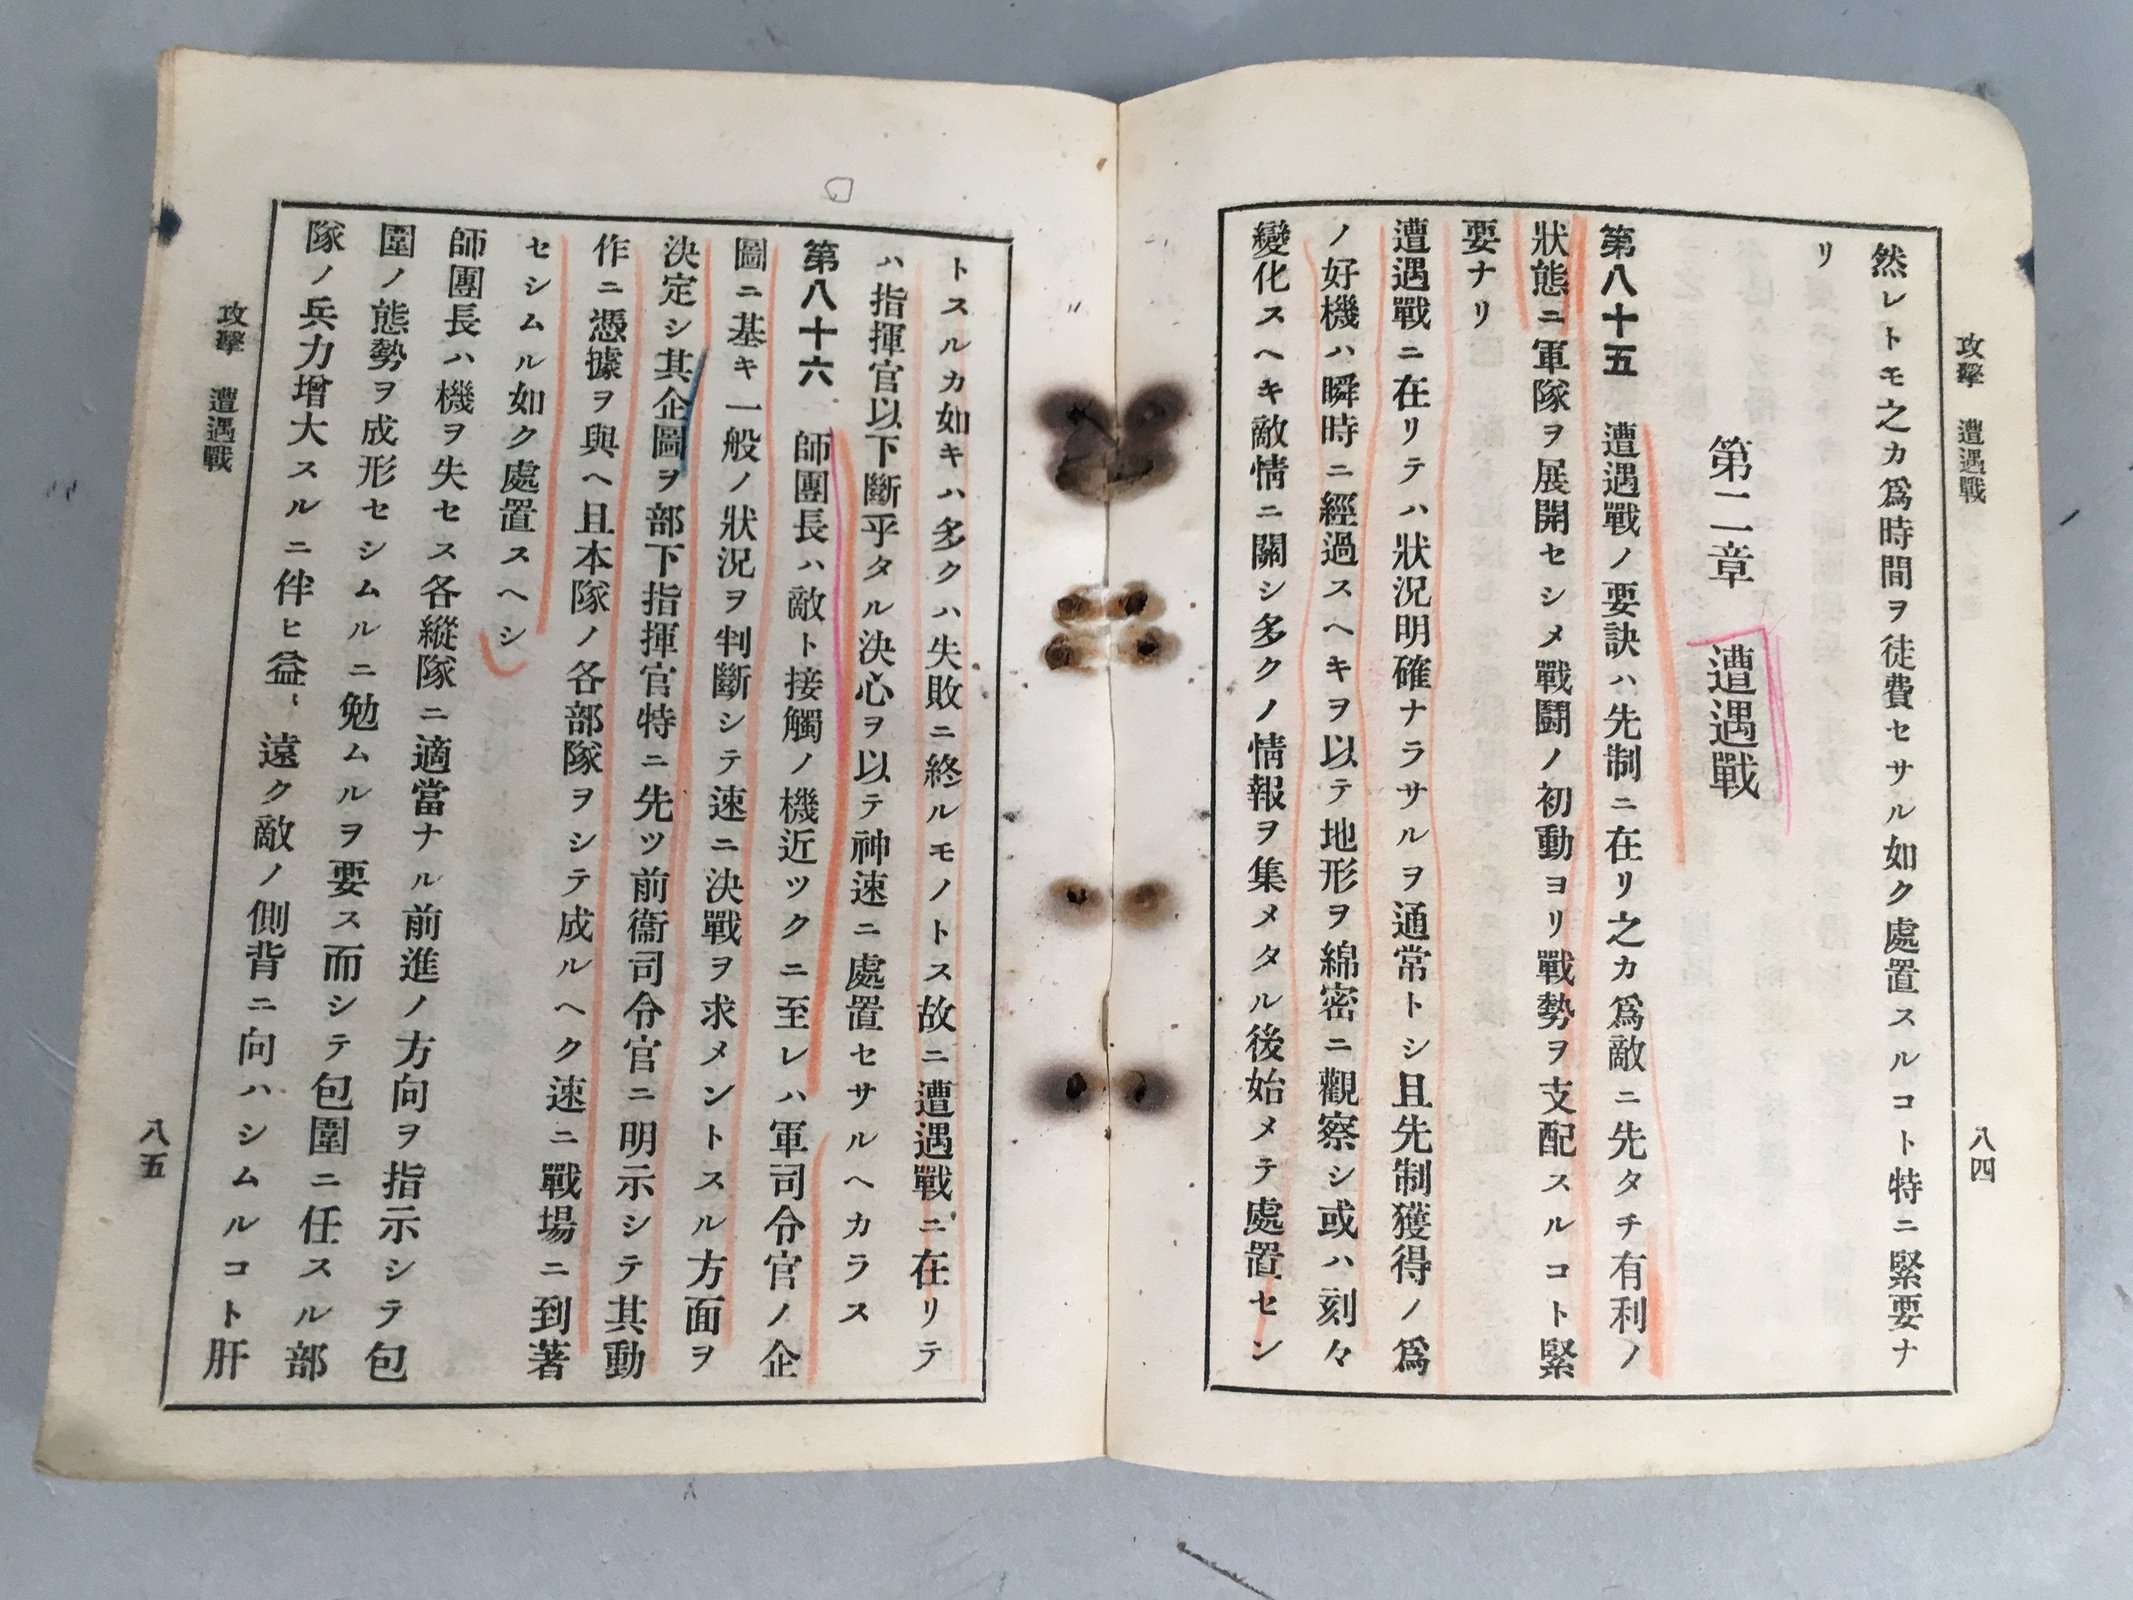 攻擊 遭遇戰
八四
然レトモ之カ爲時間ヲ徒費セサル如ク處置スルコト特ニ緊要ナ
リ
第二章 遭遇戰
第八十五 遭遇戰ノ要訣ハ先制ニ在リ之カ爲敵ニ先タチ有利ノ
狀態ニ軍隊ヲ展開セシメ戰鬪ノ初動ヨリ戰勢ヲ支配スルコト緊
要ナリ
遭遇戰ニ在リテハ狀況明確ナラサルヲ通常トシ且先制獲得ノ爲
ノ好機ハ瞬時ニ經過スヘキヲ以テ地形ヲ綿密ニ觀察シ或ハ刻々
變化スヘキ敵情ニ關シ多クノ情報ヲ集メタル後始メテ處置セン
トスルカ如キハ多クハ失敗ニ終ルモノトス故ニ遭遇戰ニ在リテ
ハ指揮官以下斷乎タル決心ヲ以テ神速ニ處置セサルヘカラス
第八十六 師團長ハ敵ト接觸ノ機近ツクニ至レハ軍司令官ノ企
圖ニ基キ一般ノ狀況ヲ判斷シテ速ニ決戰ヲ求メントスル方面ヲ
決定シ其企圖ヲ部下指揮官特ニ先ツ前衞司令官ニ明示シテ其動
作ニ憑據ヲ與ヘ且本隊ノ各部隊ヲシテ成ルヘク速ニ戰場ニ到著
セシムル如ク處置スヘシ
師團長ハ機ヲ失セス各縱隊ニ適當ナル前進ノ方向ヲ指示シテ包
圍ノ態勢ヲ成形セシムルニ勉ムルヲ要ス而シテ包圍ニ任スル部
隊ノ兵力增大スルニ伴ヒ益〻遠ク敵ノ側背ニ向ハシムルコト肝
攻擊 遭遇戰
八五